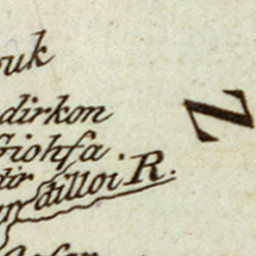 ouk
dirkon
Giohfa
dir
dilloi R.
N